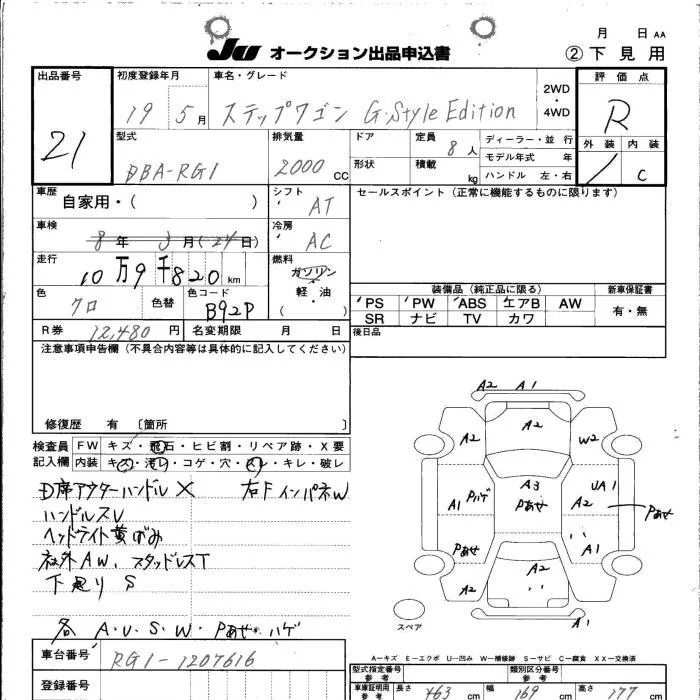 月 日 AA
JU オークション出品申込書
② 下見用
出品番号 21
初度登録年月 19 5月
車名・グレード ステップワゴン G.Style Edition
2WD・4WD
評価点 R
外装 内装 C
型式 DBA-RG1
排気量 2000 CC
ドア
形状
定員 8人
積載 kg
ディーラー・並行
モデル年式 年
ハンドル 左・右
車歴 自家用・( )
シフト AT
セールスポイント(正常に機能するものに限ります)
車検 8年 3月(24日)
冷房 AC
走行 10万9千820 km
燃料 ガソリン
軽・油
( )
色 クロ
色替
色コード B92P
装備品(純正品に限る)
新車保証書
PS PW ABS エアB AW
有・無
SR ナビ TV カワ
R券 12,480円
名変期限 月 日
後日品
注意事項申告欄(不具合内容等は具体的に記入してください)
修復歴 有 〔箇所 〕
検査員記入欄
FW キズ・飛石・ヒビ割・リペア跡・X要
内装 キズ・汚レ・コゲ・穴・スレ・キレ・破レ
D席アウターハンドル X 右FインパネW
ハンドルスレ
ヘッドライト黄ばみ
社外AW、スタッドレスT
下廻り S
各 A・U・S・W・Pあせ・ハゲ
A2 A1
A2
A2 W2
A3
Pあせ
A1 Pハゲ
UA1
A2
Pあせ
Pあせ A1
A2
A2
A1
スペア
A-キズ E-エクボ U-凹み W-補修跡 S-サビ C-腐食 XX-交換済
車台番号 RG1-1207616
登録番号
型式指定番号 参考
類別区分番号 参考
車庫証明用 参考 長さ 463 cm 幅 169 cm 高さ 177 cm